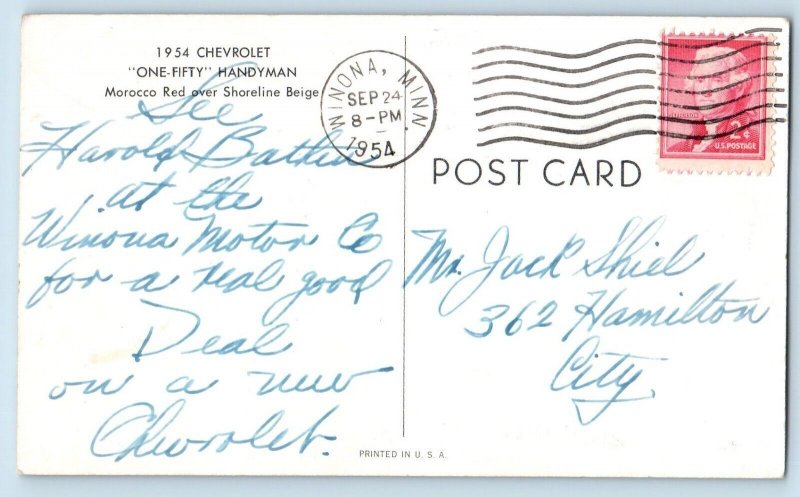 1954 CHEVROLET
"ONE-FIFTY" HANDYMAN
Morocco Red over Shoreline Beige
See
Harold
at the
Winona Motor Co
for a real good
Deal
on a new
Chevrolet.
WINONA, MINN.
SEP 24
8-PM
1954
2¢
U.S. POSTAGE
POST CARD
Mr. Jack Shiel
362 Hamilton
City.
PRINTED IN U. S. A.